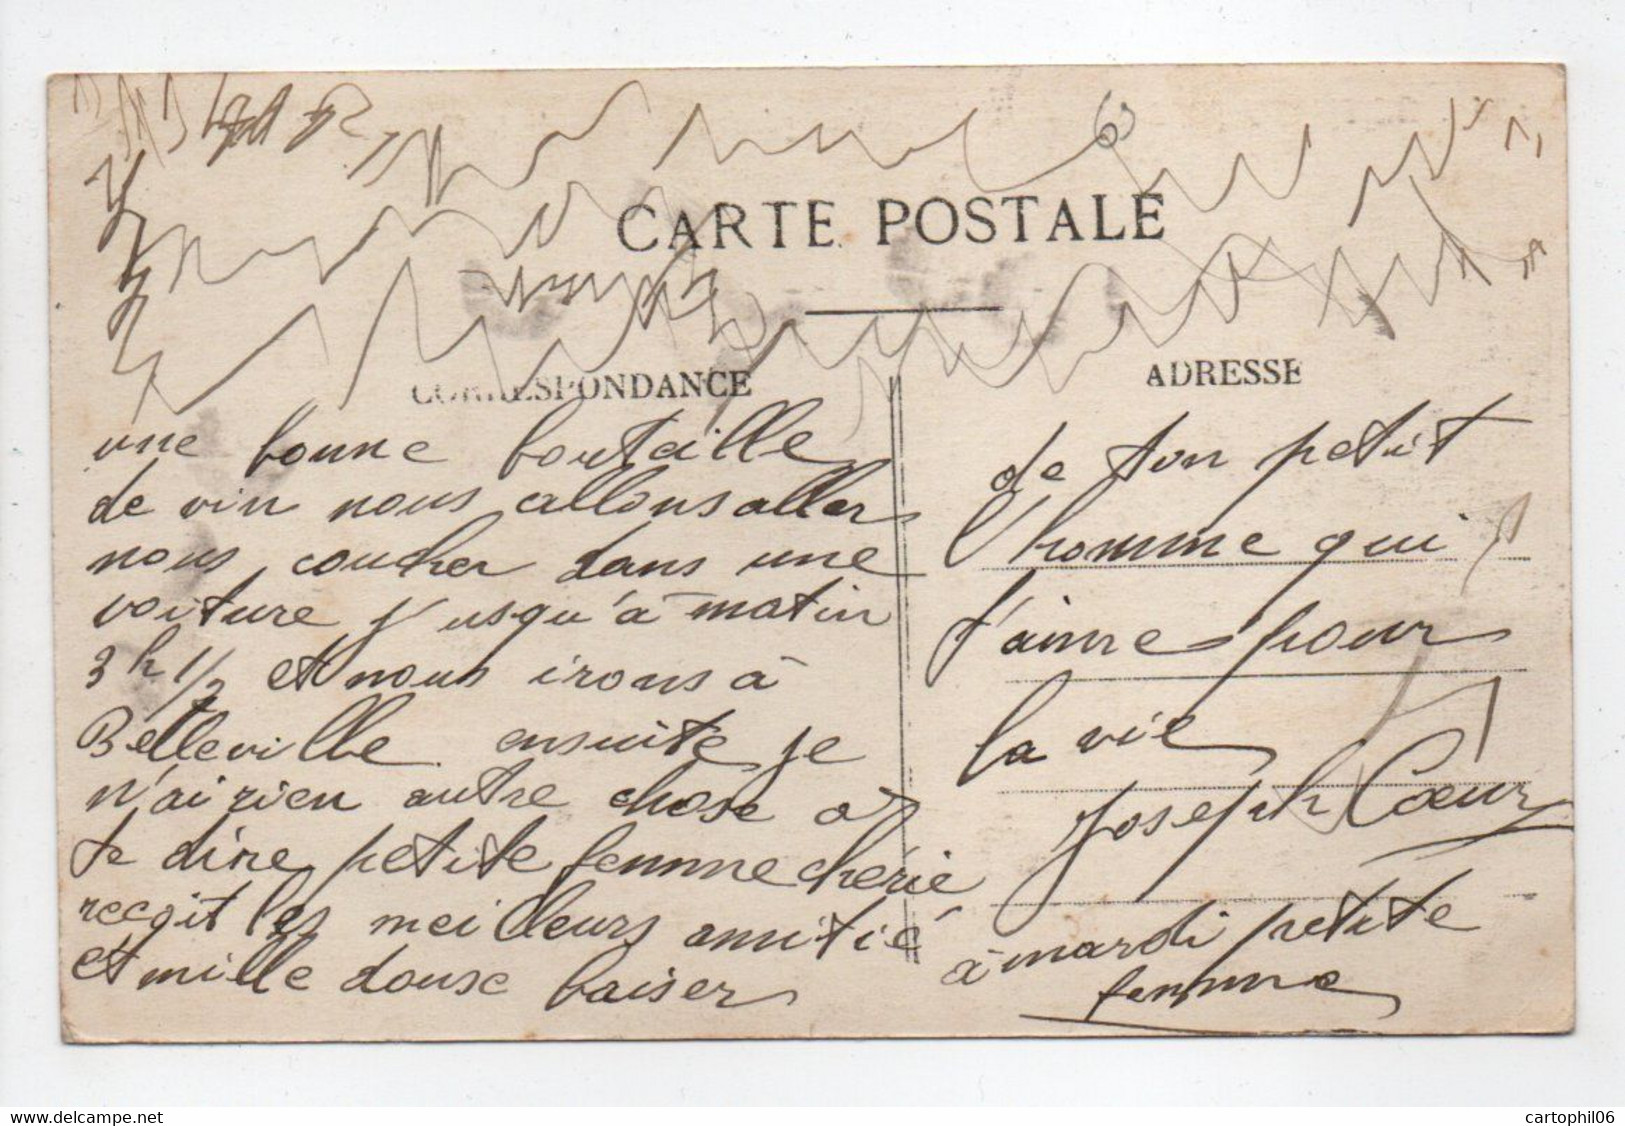 CARTE POSTALE
CORRESPONDANCE
une bonne boutaille
de vin nous allons aller
nous coucher dans une
voiture j'usqu'à matin
3h 1/2 et nous irons à
Belleville ensuite je
n'ai rien autre chose a
te dire petite femme chérie
reçoit les meilleurs amitié
et mille douse baiser
ADRESSE
de ton petit
l'homme qui
t'aime pour
la vie
Joseph Cœur
à mardi petite
femme
cartophil06
delcampe.net